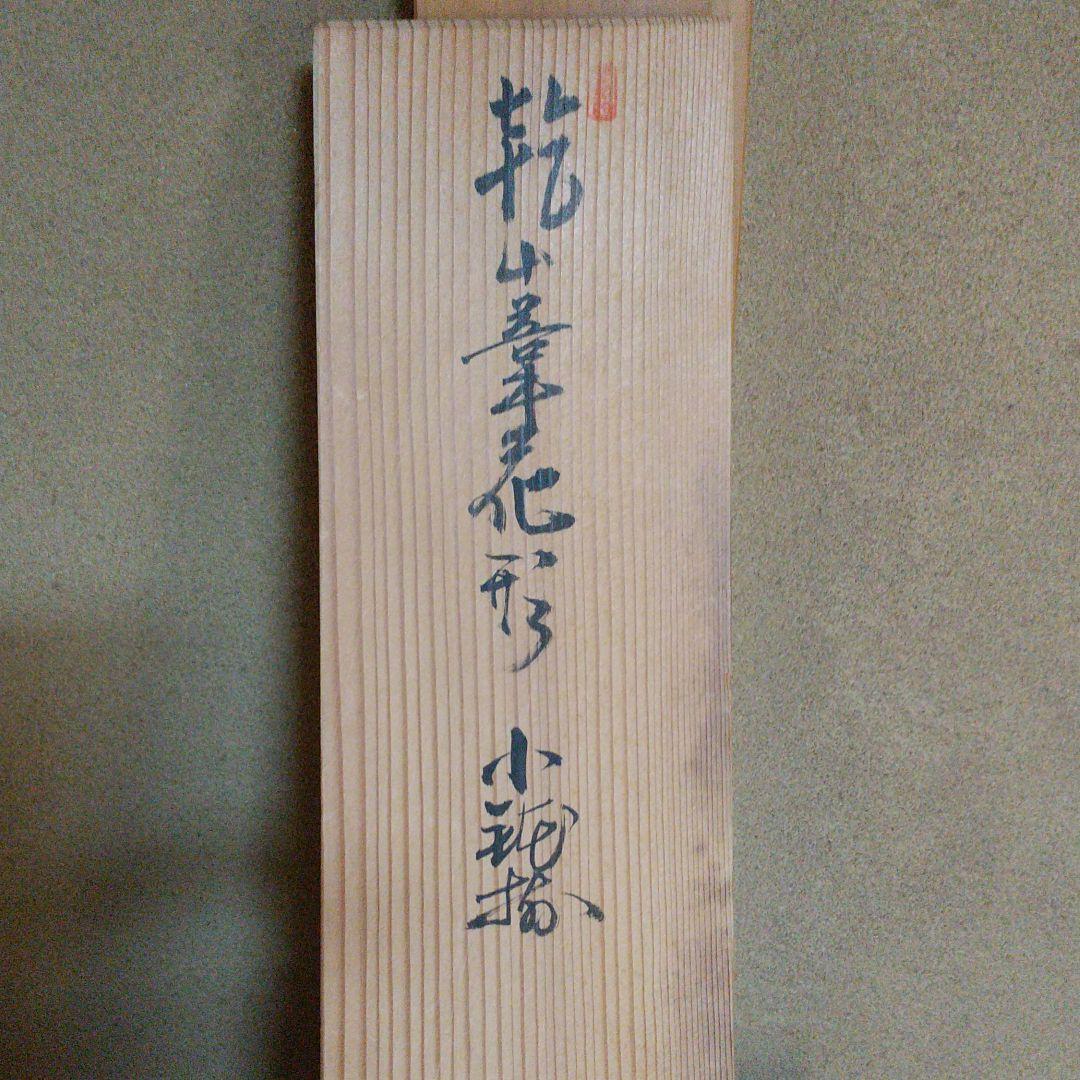 乾山葦花形 小鉢揃